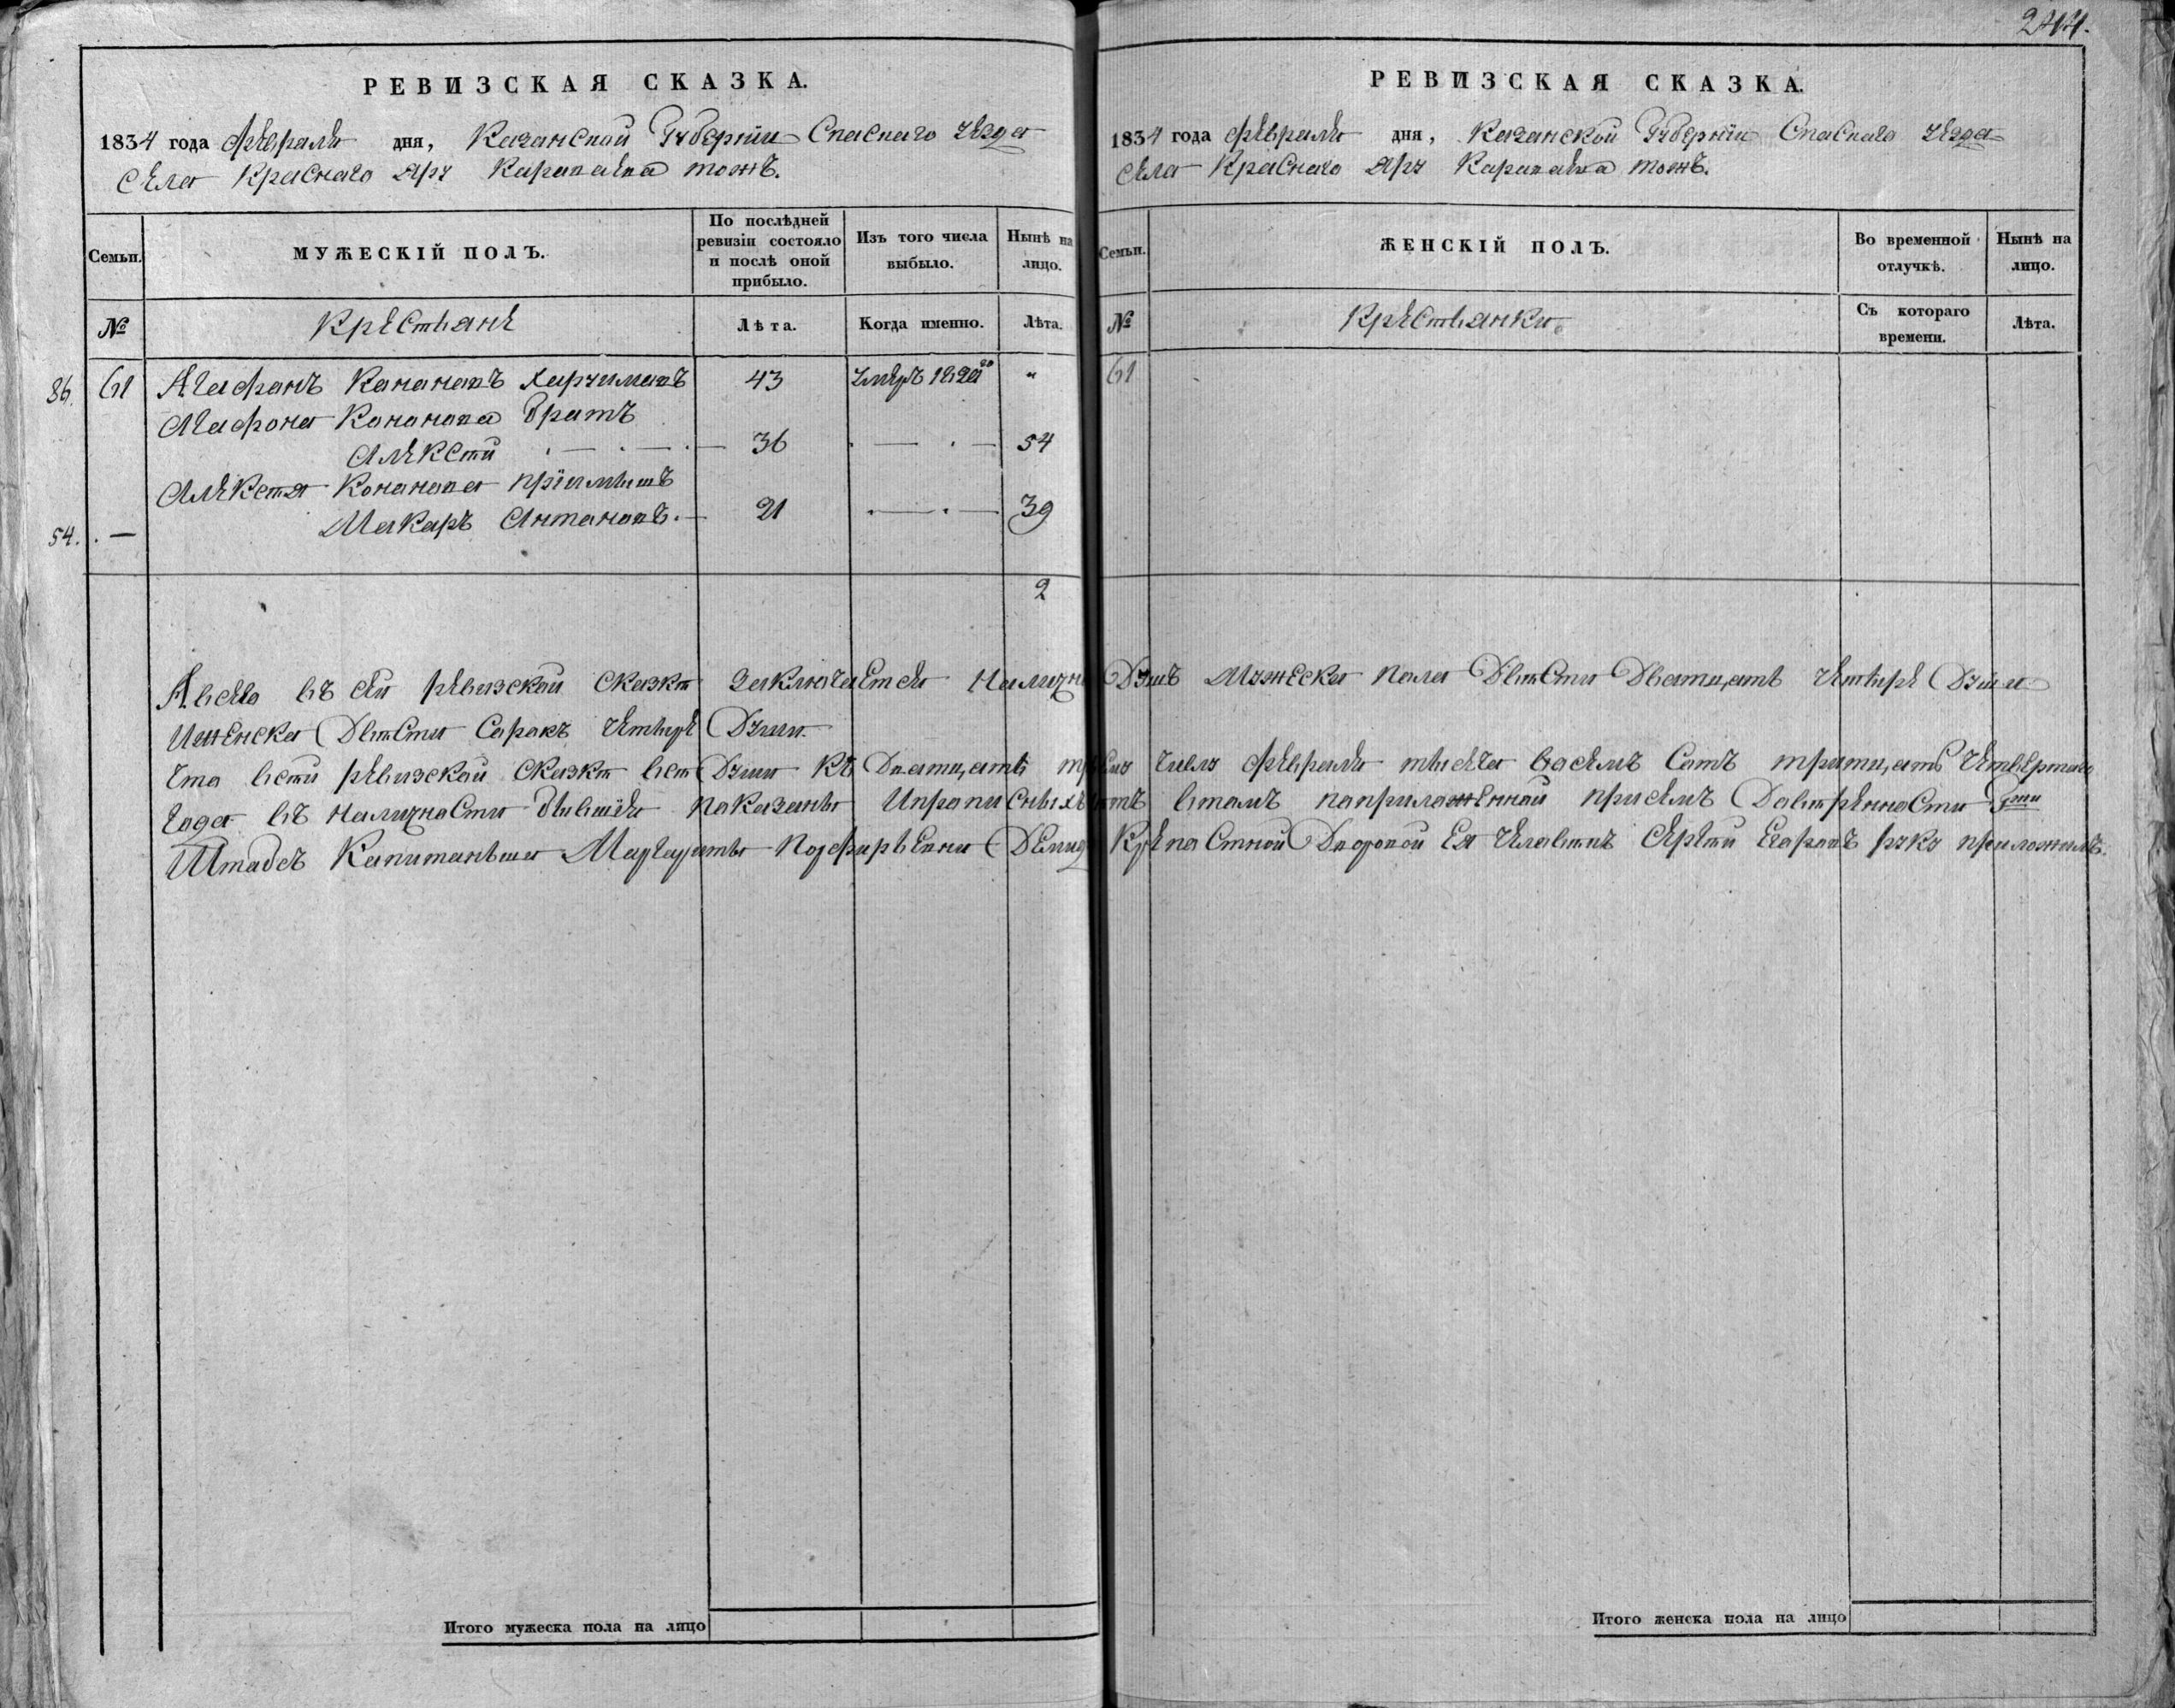 244.
РЕВИЗСКАЯ СКАЗКА.
1834 года Февраля дня, Казанской Губернïи Спаскаго уезда
села Краснаго Яру тожъ.
Семьи.
МУЖЕСКІЙ ПОЛЪ.
По послѣдней ревизіи состояло и послѣ оной прибыло.
Изъ того числа выбыло.
Нынѣ на лицо.
№
Крестьяне
Лѣта.
Когда именно.
Лѣта.
86. 61 Агафонъ Канановъ 43 умеръ 1820 "
Агафона Кананова братъ
Алексѣй 36 54
Алексѣя Конанова прïимышъ
54. Макаръ Антановъ. 21 39
2
РЕВИЗСКАЯ СКАЗКА.
1834 года Февраля дня, Казанской Губернïи Спаскаго уезда
села Краснаго Яру тожъ.
Семьи.
ЖЕНСКІЙ ПОЛЪ.
Во временной отлучкѣ.
Нынѣ на лицо.
№
Крестьянки
Съ котораго времени.
Лѣта.
61
Авсего въ сей ревизской сказкѣ заключается Налична Душъ мужеска пола Двѣсти Дватцать четыре Души
Иженска Двѣсти Сарокъ четыре Души.
Что всѣй ревизской сказкѣ всѣ Души къ Дватцать числу Февраля тысеча васемъ Сатъ тритцать четвертаго
года въ наличности бывшïя паказаны Ипрописныхъ нѣтъ втомъ
Штабсъ Капитанши Маргариты Порфирьевны Крепостной Дворовой Ея человѣкъ Сергѣй Егоровъ руку приложилъ.
Итого мужеска пола на лицо
Итого женска пола на лицо